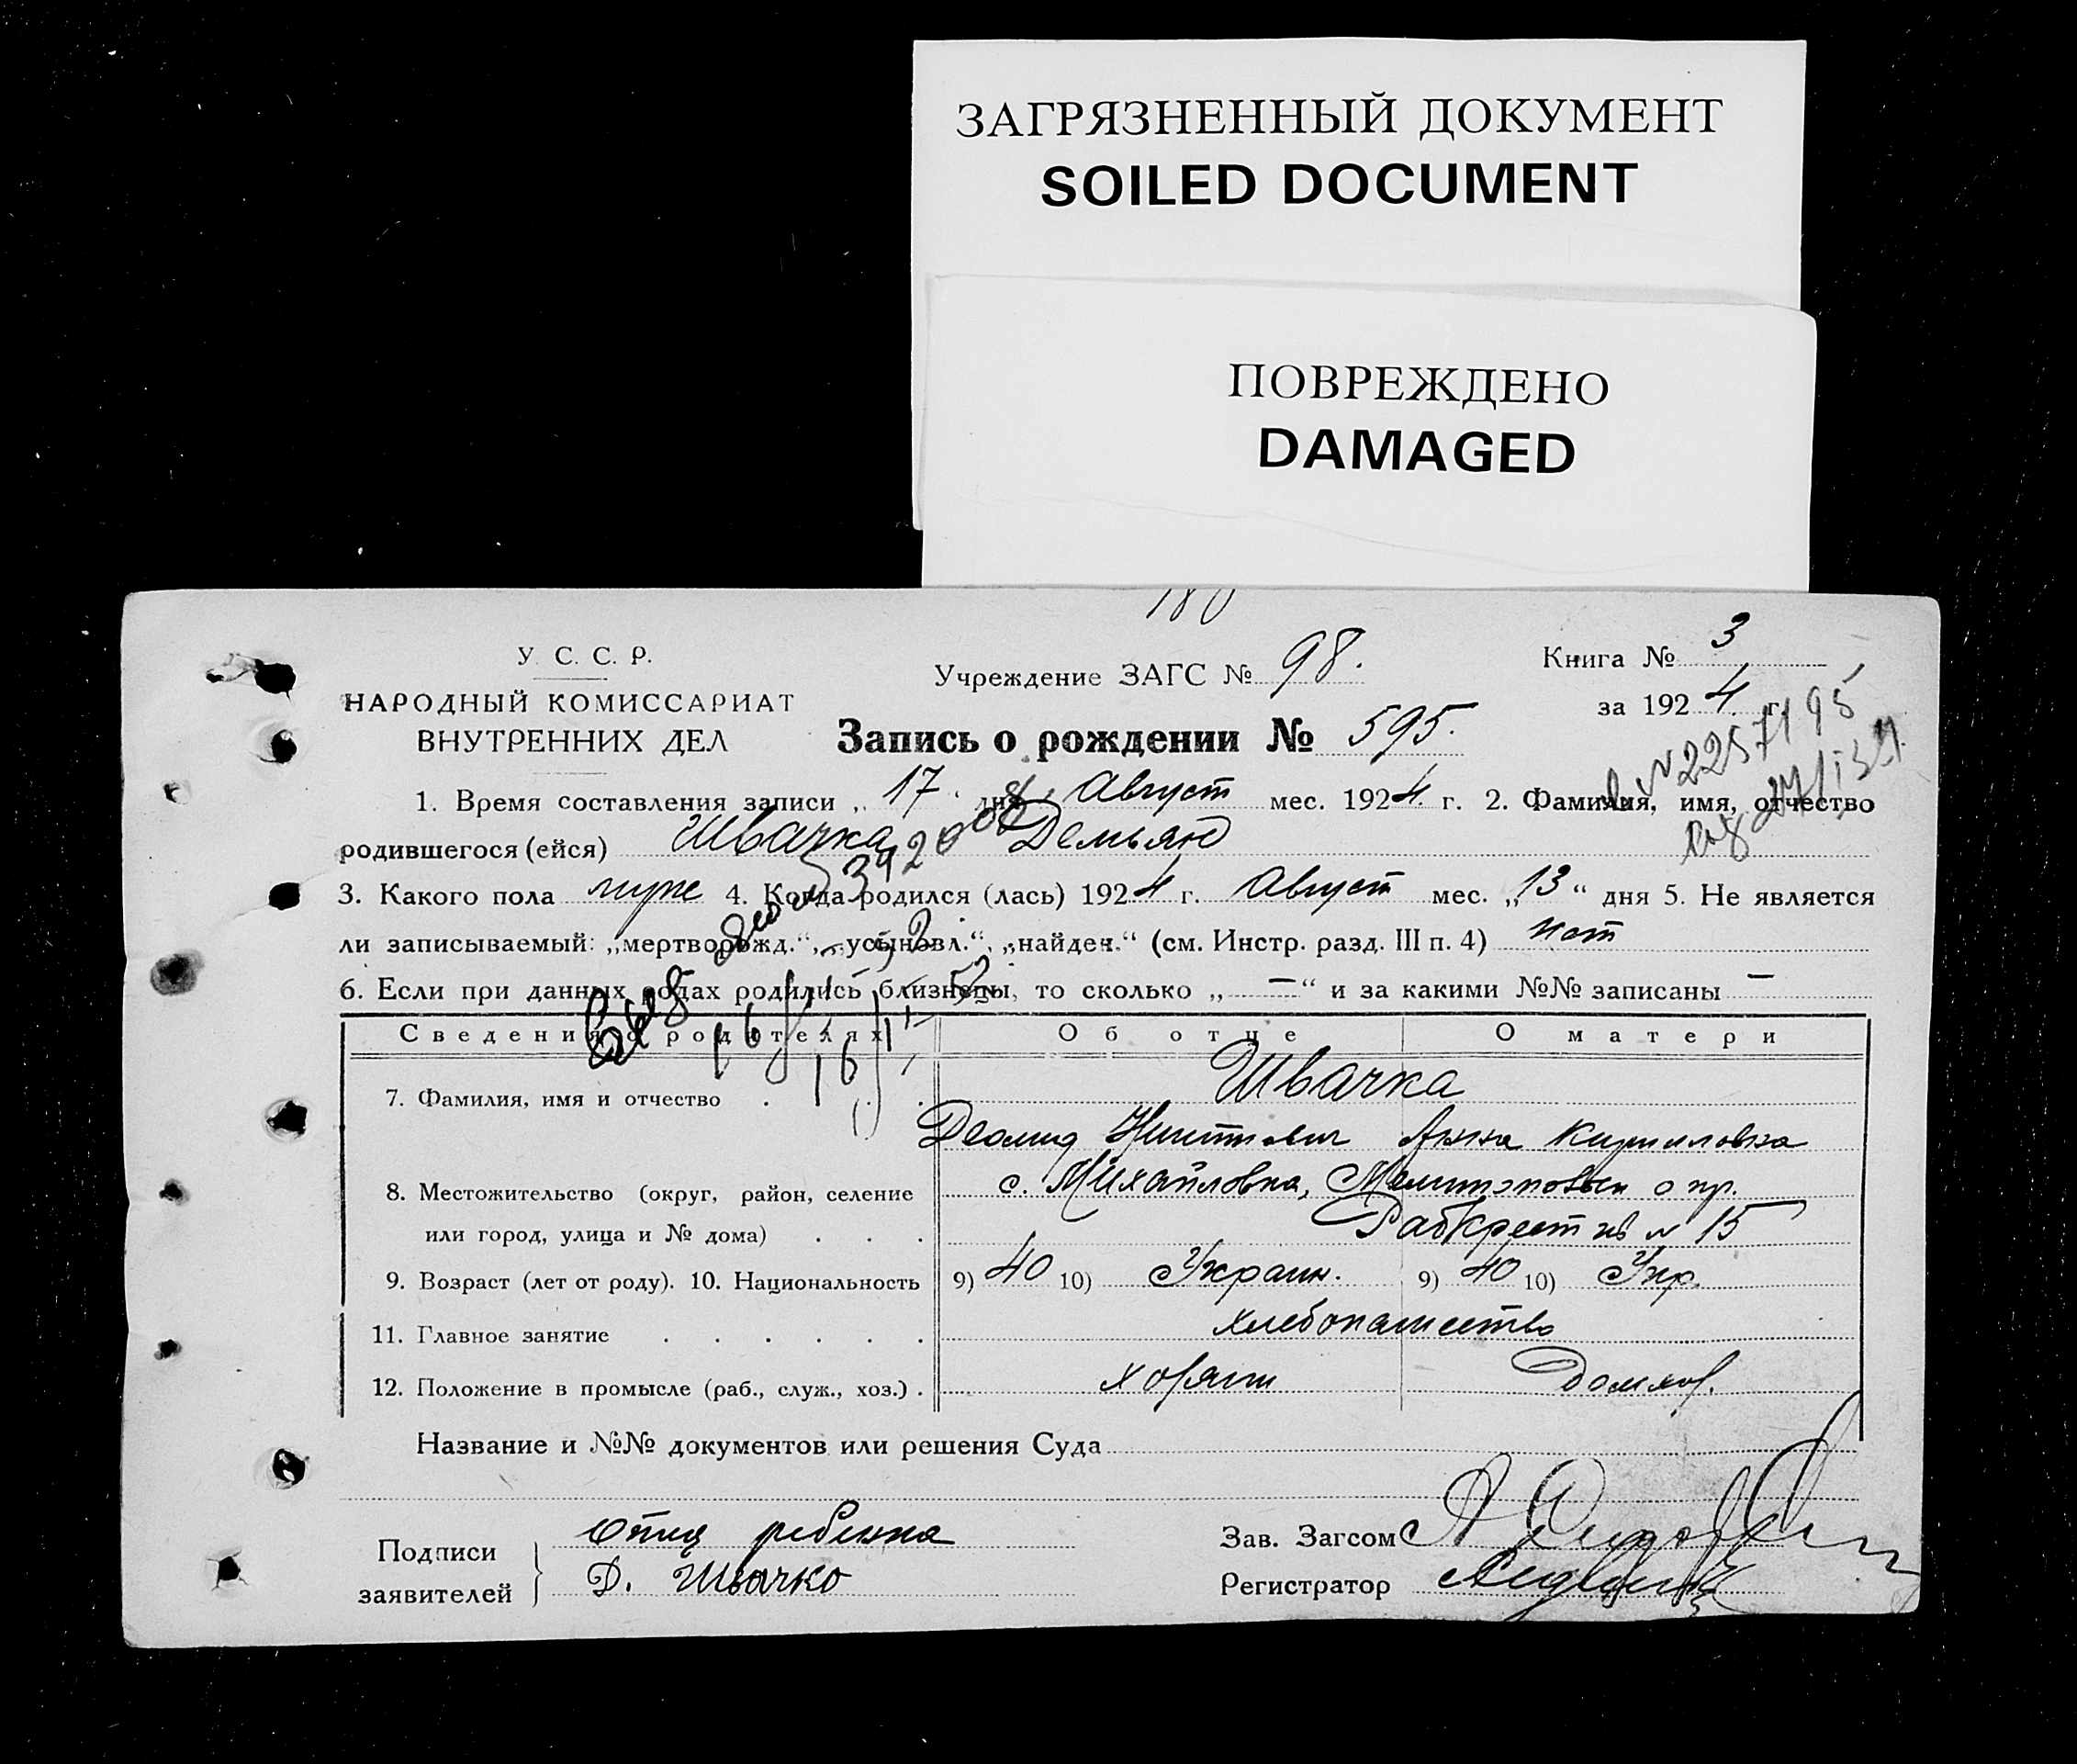 ЗАГРЯЗНЕННЫЙ ДОКУМЕНТ
SOILED DOCUMENT
ПОВРЕЖДЕНО
DAMAGED
180
У. С. С. Р.
НАРОДНЫЙ КОМИССАРИАТ
ВНУТРЕННИХ ДЕЛ
Учреждение ЗАГС № 98.
Книга № 3
за 1924 г.
Запись о рождении № 595.
1. Время составления записи „17“ дня Август мес. 1924 г. 2. Фамилия, имя, отчество
родившегося (ейся) Швачка Демьян
3. Какого пола муже 4. Когда родился (лась) 1924 г. Август мес. „13“ дня 5. Не является
ли записываемый: „мертворожд.“, „усыновл.“, „найден.“ (см. Инстр. разд. III п. 4) нет
6. Если при данных родах родились близнецы, то сколько „—“ и за какими №№ записаны —
Сведения о родителях Об отце О матери
7. Фамилия, имя и отчество Швачка
Анна Кирилловна
8. Местожительство (округ, район, селение с. Михайловка, Мелитопольск окр.
или город, улица и № дома) № 15
9. Возраст (лет от роду). 10. Национальность 9) 40 10) Украин. 9) 40 10) Укр.
11. Главное занятие хлебопашество
12. Положение в промысле (раб., служ., хоз.) хозяин Домхоз.
Название и №№ документов или решения Суда
Подписи заявителей
Отец ребенка
Д. Швачко
Зав. Загсом
Регистратор